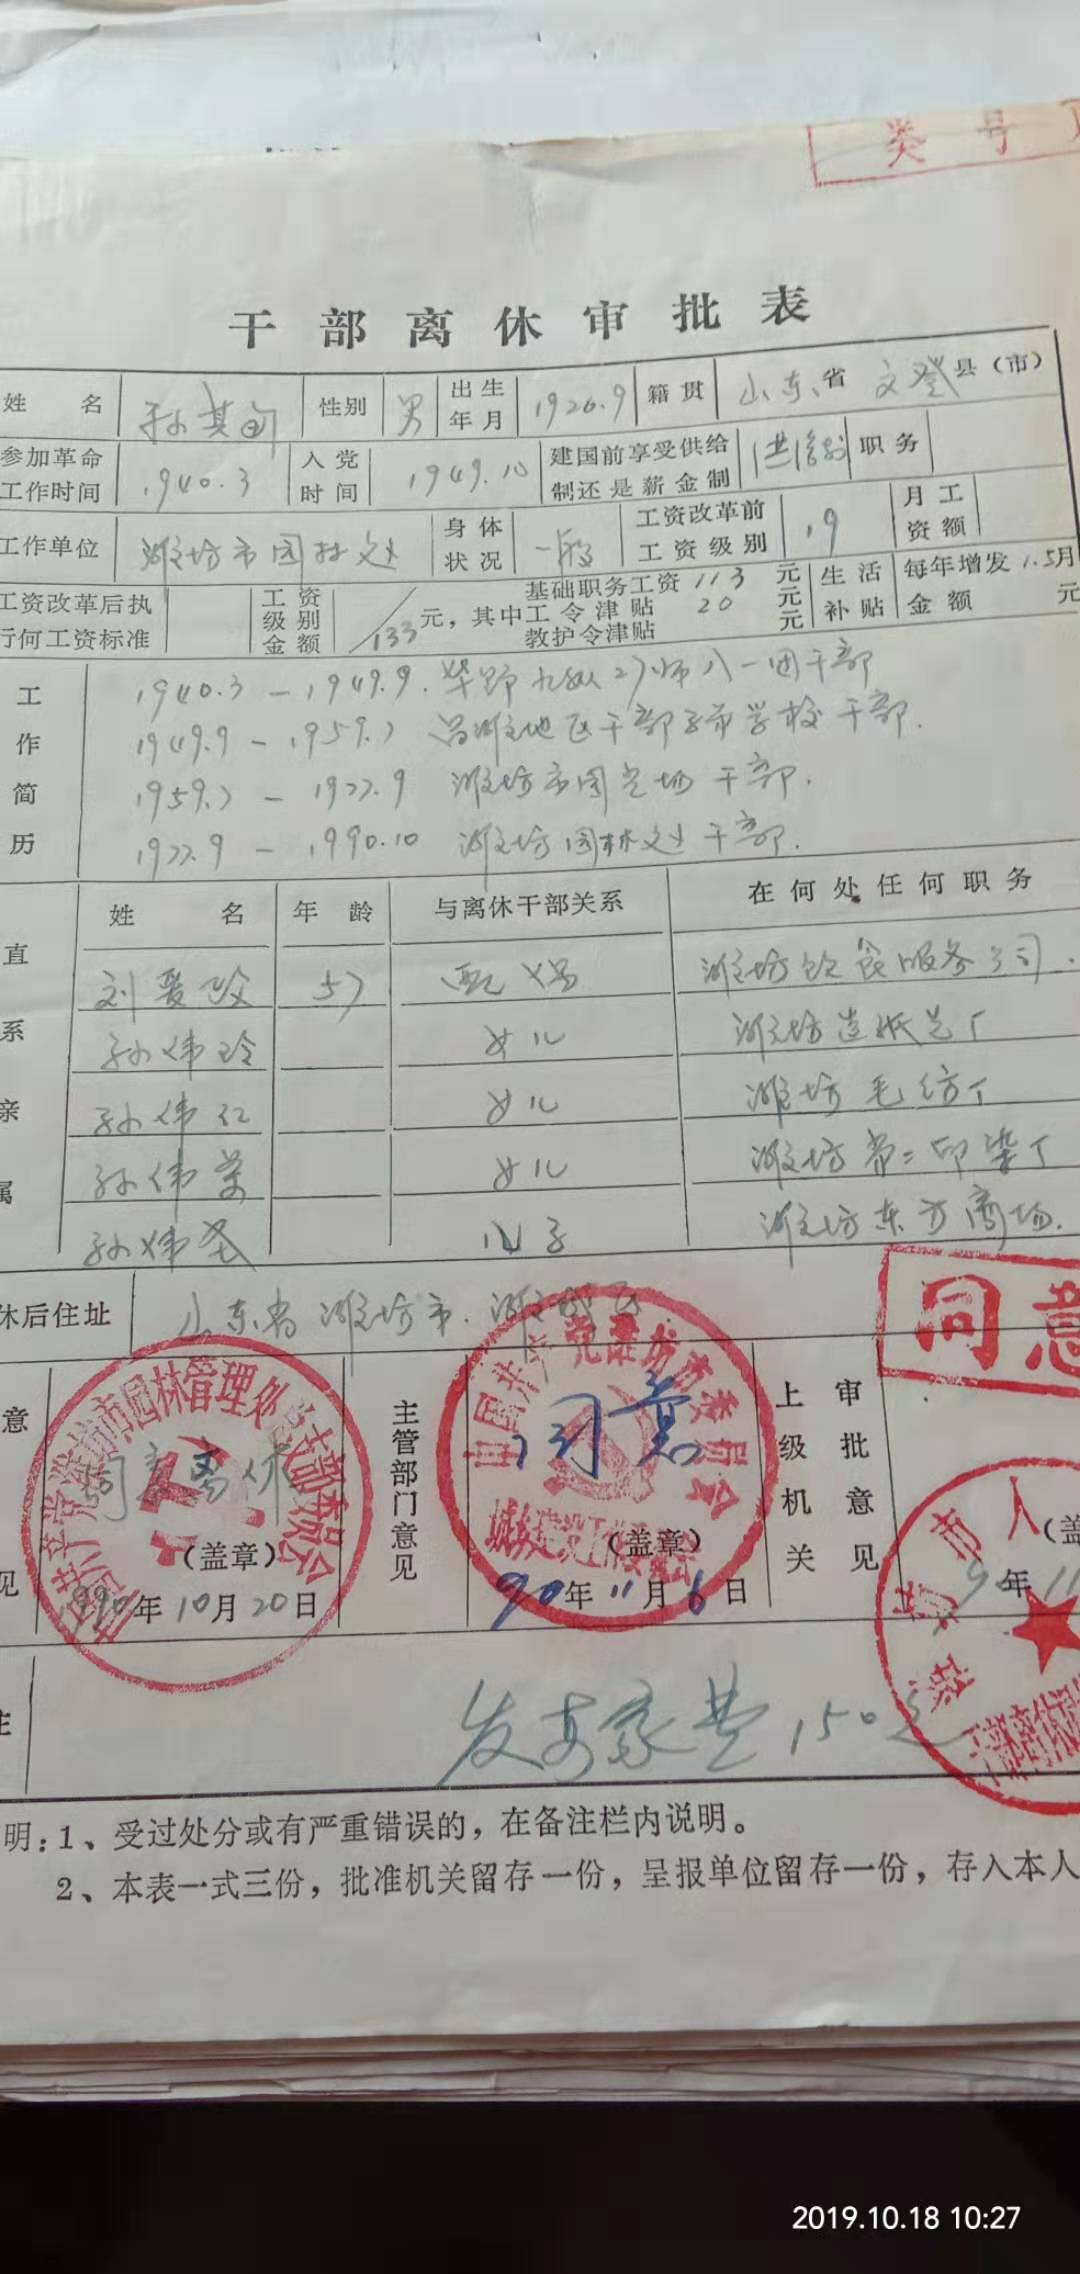 类 号
干部离休审批表
姓 名 孙其甸 性别 男 出生年月 1926.9 籍贯 山东省文登县（市）
参加革命工作时间 1940.3 入党时间 1949.10 建国前享受供给制还是薪金制 供给制 职务
工作单位 潍坊市园林处 身体状况 一般 工资改革前工资级别 19 月工资额
工资改革后执行何工资标准 工资级别金额 133元，其中 基础职务工资 113 元 工令津贴 20 元 教护令津贴 元 生活补贴 每年增发 1.5月 金额 元
工作简历
1940.3－1949.9.华野九纵27师八一团干部
1949.9－1959.7 昌潍地区干部学校干部.
1959.7－1977.9 潍坊市园艺场干部.
1977.9－1990.10 潍坊园林处干部.
直系亲属
姓 名 年 龄 与离休干部关系 在何处任何职务
刘爱 57 配偶 潍坊饮食服务公司.
孙伟玲 女儿 潍坊造纸总厂
孙伟红 女儿 潍坊毛纺厂
孙伟 女儿 潍坊第二印染厂
孙伟 儿子 潍坊东方商场.
休后住址 山东省潍坊市.潍城区
意见 同意离休
（盖章）
1990年10月20日
中国共产党潍坊市园林管理处支部委员会
主管部门意见 同意
（盖章）
90年11月6日
中国共产党潍坊市委员会
城乡建设工作委员会
上级机关审批意见
同意
（盖
90年11
潍坊市人
干部离休
注 发安家费150元
明：1、受过处分或有严重错误的，在备注栏内说明。
2、本表一式三份，批准机关留存一份，呈报单位留存一份，存入本人
2019.10.18 10:27